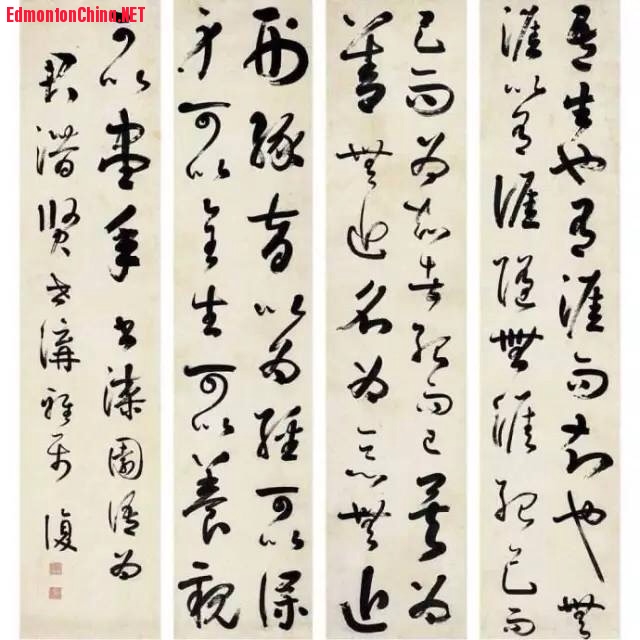 EdmontonChina.NET
吾生也有涯而知也無
涯以有涯隨無涯殆已而
已而為知者殆而已矣為
善無近名為惡無近
刑緣督以為經可以保
身可以全生可以養親
可以盡年書漆園語為
潛賢世講雅屬 復